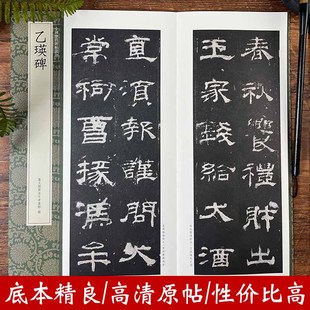 乙瑛碑
春秋饗禮財出
王家錢給大酒
直須報謹問大
常祠曹掾馮牟
底本精良/高清原帖/性价比高